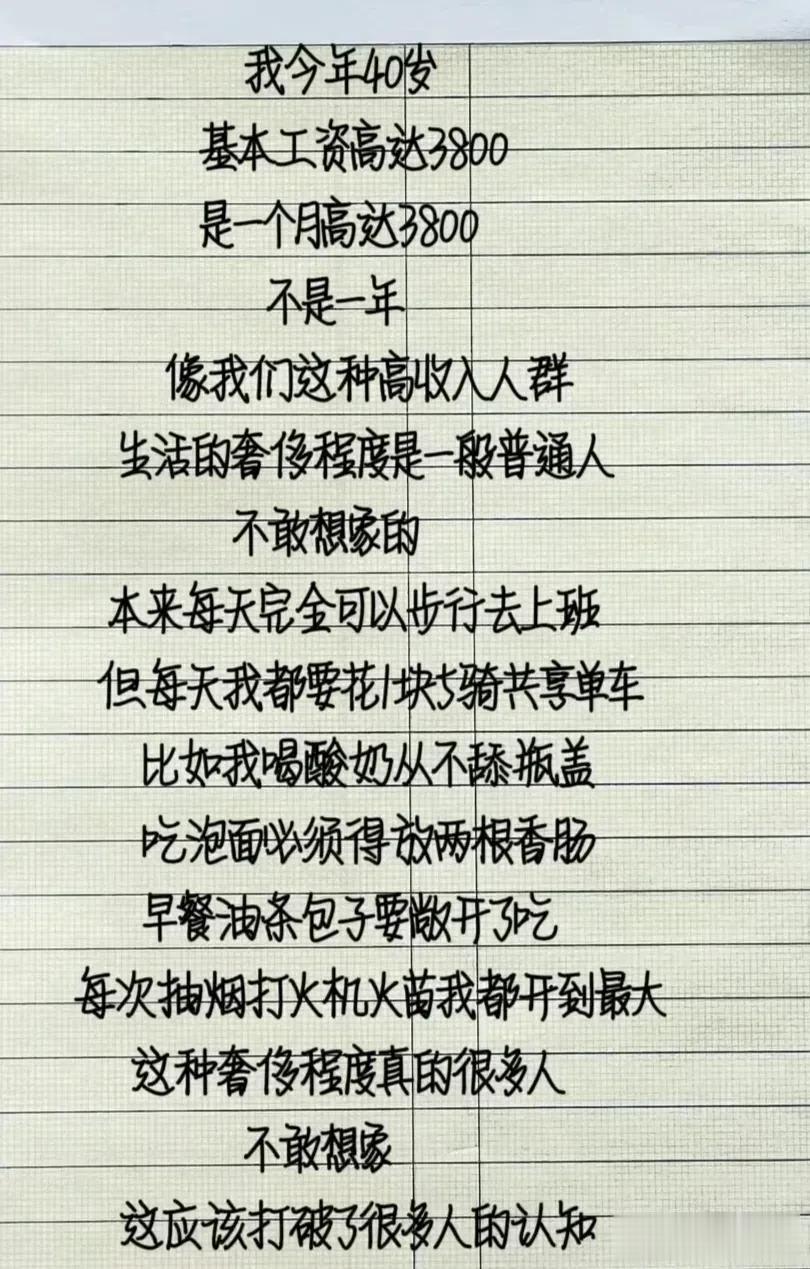 我今年40岁
基本工资高达3800
是一个月高达3800
不是一年
像我们这种高收入人群
生活的奢侈程度是一般普通人
不敢想象的
本来每天完全可以步行去上班
但每天我都要花1块5骑共享单车
比如我喝酸奶从不舔瓶盖
吃泡面必须得放两根香肠
早餐油条包子要敞开了吃
每次抽烟打火机火苗我都开到最大
这种奢侈程度真的很多人
不敢想象
这应该打破了很多人的认知